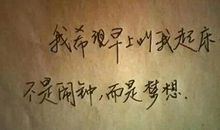 我希望早上叫我起床
不是闹钟，而是梦想.